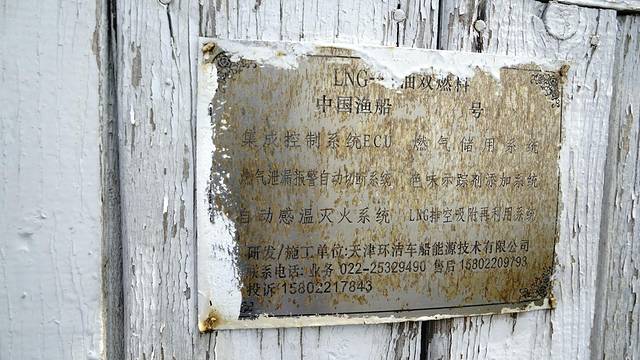 LNG- 油双燃料
中国渔船 号
集成控制系统ECU 燃气储用系统
燃气泄漏报警自动切断系统 色味示踪剂添加系统
自动感温灭火系统 LNG排空吸附再利用系统
研发/施工单位:天津环洁车船能源技术有限公司
联系电话: 业务 022-25329490 售后 15802209793
投诉 15802217843